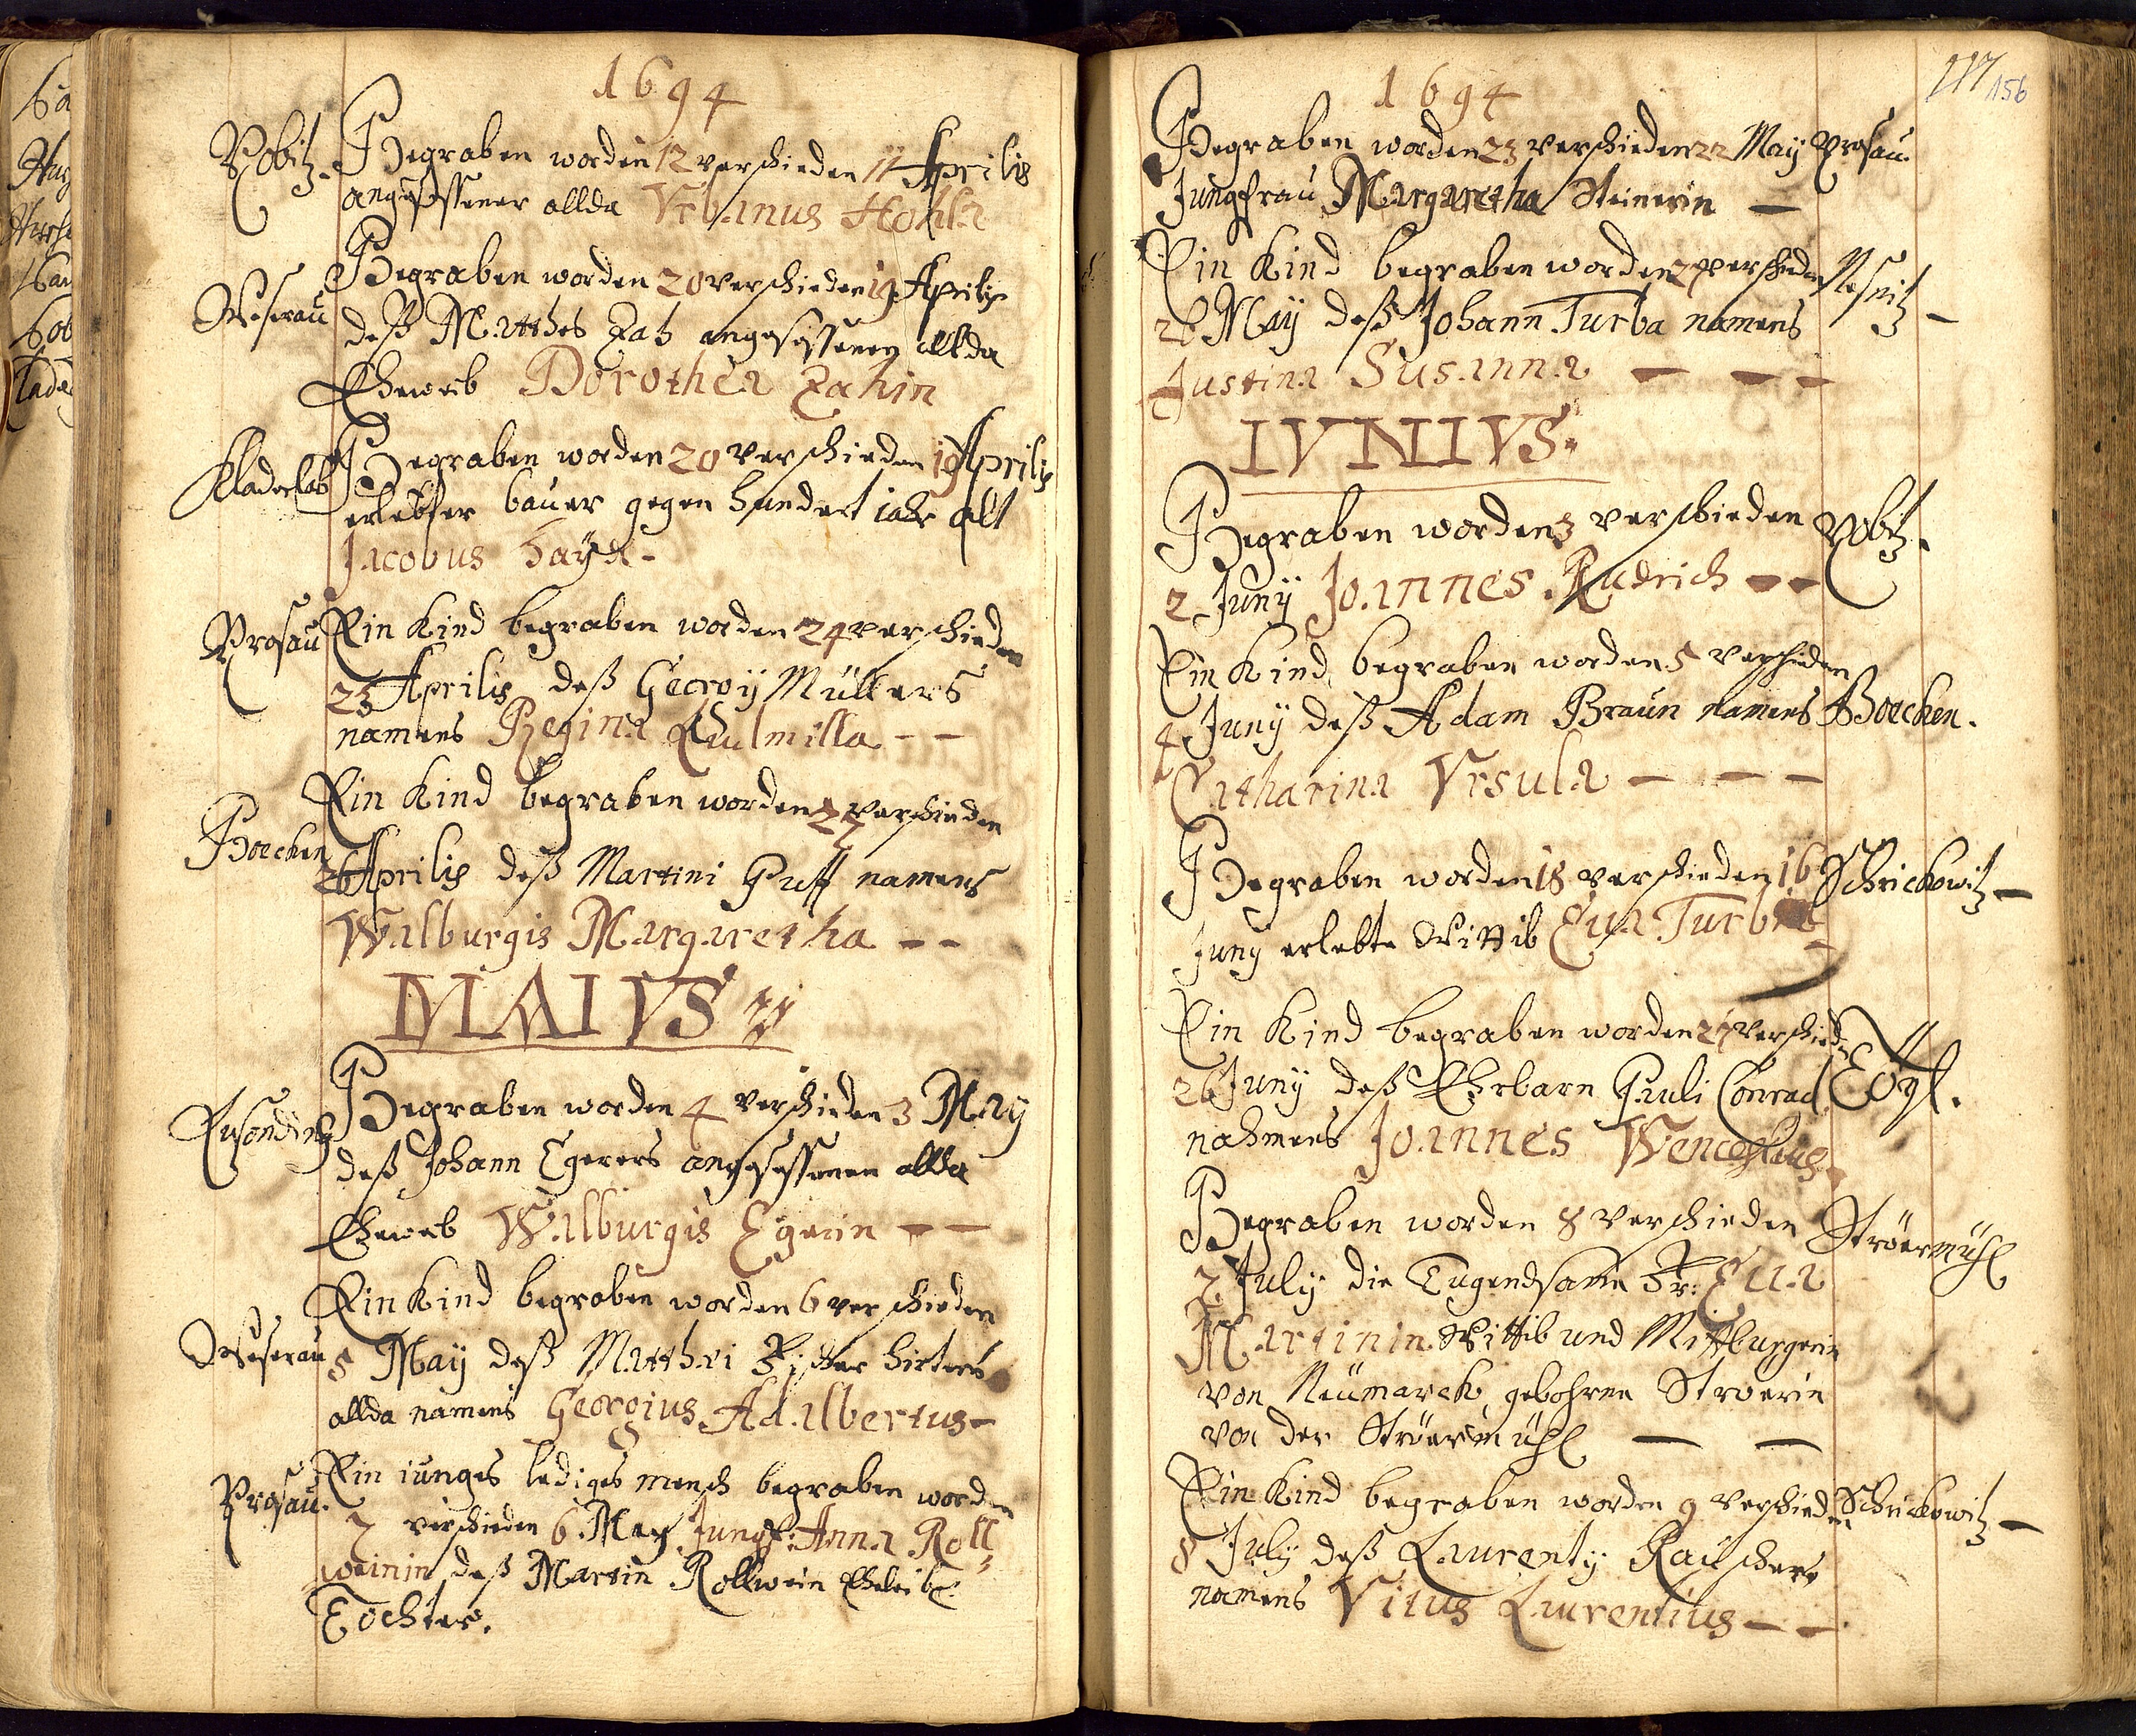 1694
Pobitz. Begraben worden 12 verschieden 11 Aprilis
angesessener allda Vrbanus Hohla
Weserau Begraben worden 20 verschieden 19 Aprilis
deß Matthes Zah angesessenen allda
Eheweib Dorothea Zahin
Kladerlas Begraben worden 20 verschieden 19 Aprilis
erlebter bauer gegen hundert iahr alt
Jacobus hayd-
Prosau Ein Kind begraben worden 24 verschieden
23 Aprilis deß Georgÿ Müllers
namens Regina Ludmilla - -
Boechen Ein Kind begraben worden 27 verschieden
26 Aprilis deß Martini Puff namens
Walburgis Margaretha - -
MAIVS
Begraben worden 4 verschieden 3 May
deß Johann Egerers angesessenen allda
Eheweib Walburgis Egerin - -
Ein Kind begraben worden 6 verschieden
Weserau 5 May deß Matthaei hirtens
allda namens Georgius Adalbertus-
Prosau. Ein iunges lediges mensch begraben worden
7 verschieden 6 May Jungf: Anna Roll
weinin deß Martin Rollwein Eheleibl.
Tochter.
117 156
1694
Begraben worden 23 verschieden 22 May Prosau.
Jungfrau Margaretha Steinerin -
Ein Kind begraben worden 27 verschieden
26 May deß Johann Turba namens
Justina Susanna - - -
IVNIVS.
Begraben worden 3 verschieden Pobitz.
2 Juny Joannes Rudrich - -
Ein Kind begraben worden 5 verschieden
4 Juny deß Adam Braun namens Boechen.
Catharina Vrsula - - -
Begraben worden 18 verschieden 16 Schrickowitz -
Juny erlebte Wittib Eua Turba
Ein Kind begraben worden 27 verschieden
26 Juny deß Ehrbarn Pauli Conrad
nahmens Joannes Wenceslaus.
Begraben worden 8 verschieden Ströermühl
7 July die Tugendsame Fr: Eua
Martinin Wittib und Mitburgerin
von Neümarck gebohrne Stroerin
von der Ströermühl - -
Ein Kind begraben worden 9 verschieden Schrickowitz -
8 July deß Laurenty Rauschers
namens Vitus Laurentius - -